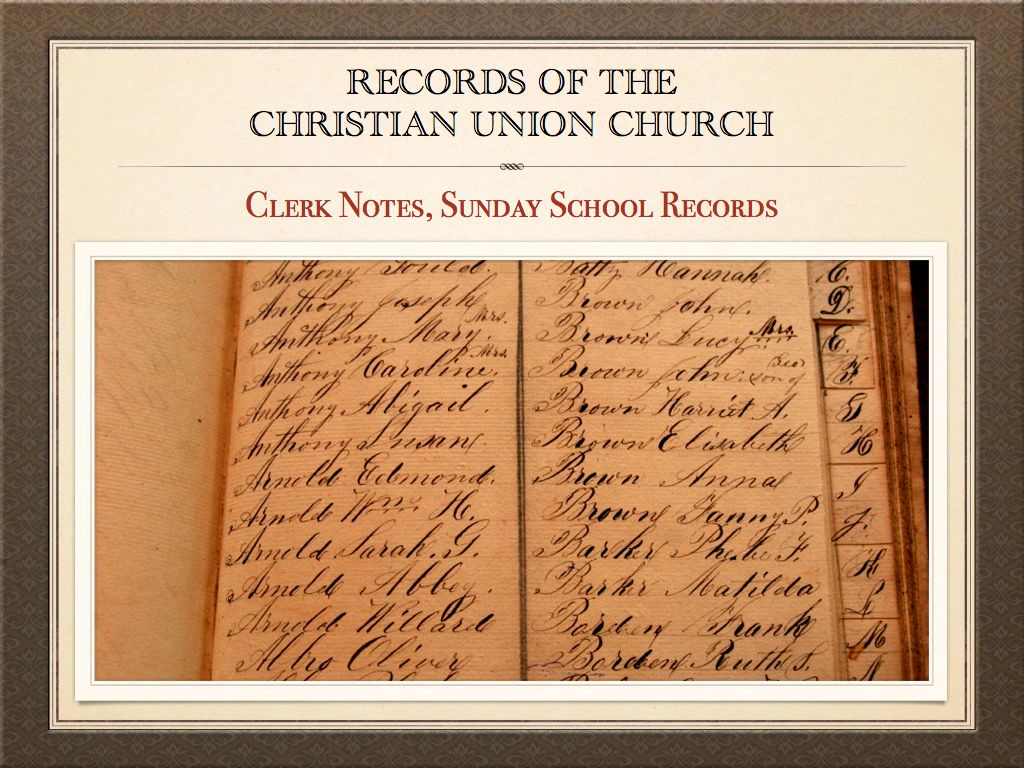 RECORDS OF THE
CHRISTIAN UNION CHURCH
Clerk Notes, Sunday School Records
Anthony
Anthony Joseph
Anthony Mary. Mrs.
Anthony Caroline. Mrs.
Anthony Abigail.
Anthony Susan
Arnold Edmond.
Arnold Wm H.
Arnold Sarah. G.
Arnold Abbey.
Arnold Willard
Albro Oliver
Batty Hannah.
Brown John.
Brown Lucy Mrs.
Brown John. son of Geo
Brown Harriet A.
Brown Elisabeth
Brown Anna
Brown Fanny P.
Barker Phebe F.
Barker Matilda
Borden Frank
Borden Ruth S.
C.
D.
E.
F.
G
H
I
J.
K
L
M
N